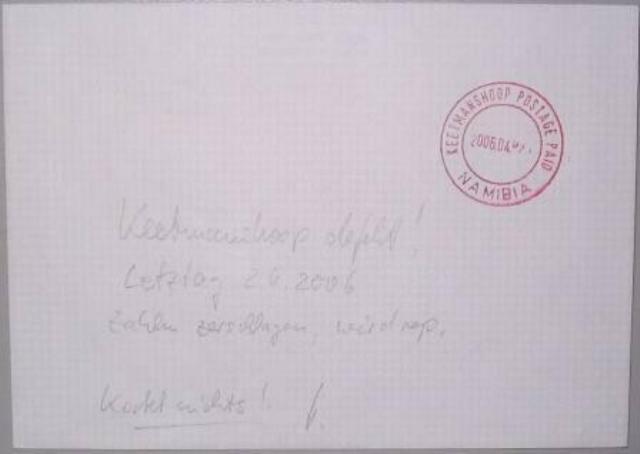 KEETMANSHOOP POSTAGE PAID
2006.04.
NAMIBIA
Keetmanshoop defekt!
Letztag 2.4.2006
Zahlen zerschlagen, wird rep.
Kostet nichts!